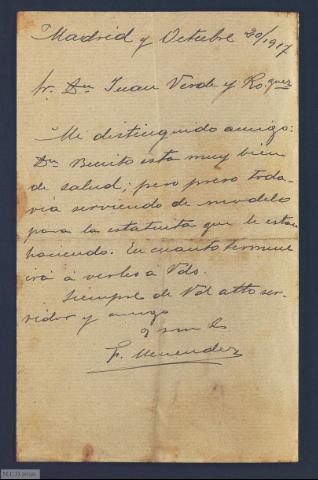 Madrid y Octubre 30/1917
Sr. Dn Juan Verde y Ro.guez
Mi distinguido amigo:
Dn Benito esta muy bien
de salud; pero preso toda-
via serviendo de modelo
para la estatuita que le estan
haciendo. En cuanto termine
irá á verles á Vds.
Siempre de Vd atto ser-
vidor y amigo
F. Menendez